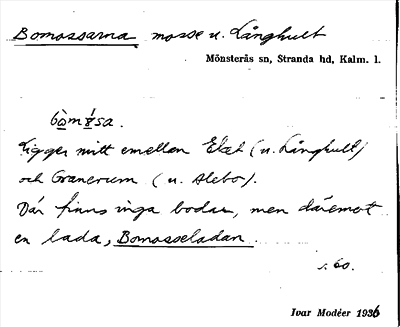 Bomossarna mosse u. Långhult
Mönsterås sn, Stranda hd, Kalm. l.
bo̱mo̱sa.
Ligger mitt emellan Eket (u. Långhult)
och Granerum (u. Alebo).
Där finns inga bodar, men däremot
en lada, Bomosseladan.
s. 60.
Ivar Modéer 1936